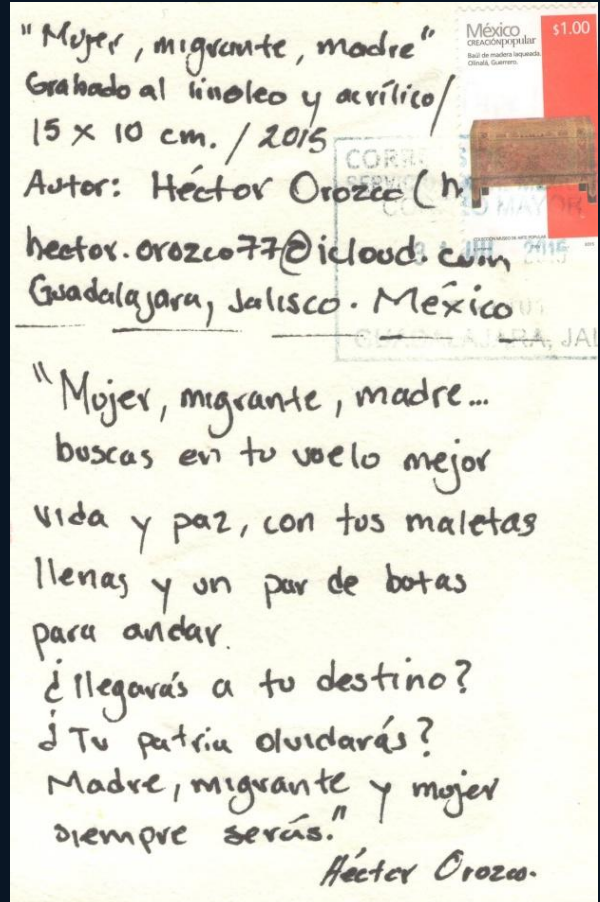 "Mujer, migrante, madre"
Grabado al linoleo y acrílico/
15 x 10 cm. / 2015
Autor: Héctor Orozco (h
hector.orozco77@icloud.com
Guadalajara, Jalisco. México
México
CREACIÓNpopular
$1.00
Baúl de madera laqueada.
Olinalá, Guerrero.
2015
GUADALAJARA, JAL
"Mujer, migrante, madre...
buscas en tu vuelo mejor
vida y paz, con tus maletas
llenas y un par de botas
para andar.
¿llegarás a tu destino?
¿Tu patria olvidarás?
Madre, migrante y mujer
siempre serás."
Héctor Orozco.